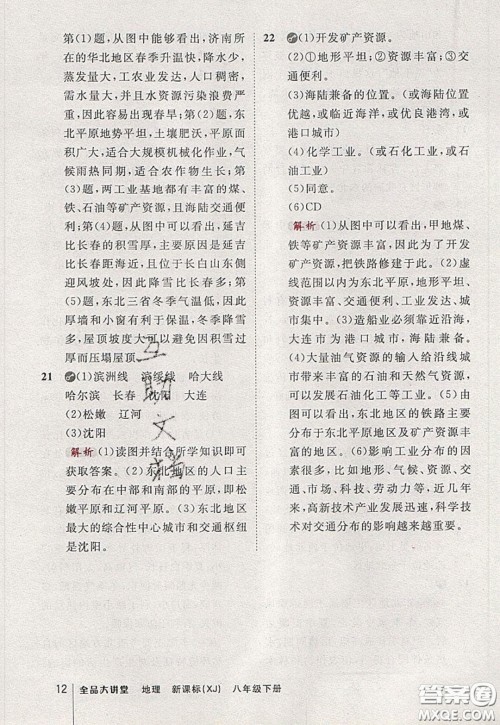 第(1)题，从图中能够看出，济南所
在的华北地区春季升温快，降水少，
蒸发量大，工农业发达，人口稠密，
需水量大，再加上水资源浪费现象
和水资源污染浪费严重，
因此容易出现春旱；第(2)题，东
北平原地势平坦，土壤肥沃，平原
面积广大，适合大规模机械化作业，气
候雨热同期，适合农作物生长；第
(3)题，两工业基地都有丰富的煤、
铁、石油等矿产资源，且海陆交通便
利；第(4)题，从图中能够看出，延吉
比长春的积雪厚，主要原因是延吉
比长春距海近，且长春位于长白山东侧
迎风坡处，因此降雪比长春多；第
(5)题，东北三省冬季气温低，因此
厚墙和小窗有利于保温，冬季降雪
多，屋顶坡度大可以避免因积雪过
厚而压塌屋顶。
21 (1)滨洲线 滨绥线 哈大线
哈尔滨 长春 沈阳 大连
(2)松嫩 辽河
(3)沈阳
解析 (1)读图并结合所学知识即可
获取答案。(2)东北地区的人口主
要分布在中部和南部的平原，即松
嫩平原和辽河平原。(3)东北地区
最大的综合性中心城市和交通枢纽
是沈阳。
22 (1)开发矿产资源。
(2)①地形平坦；②资源丰富；③交
通便利。
(3)海陆兼备的位置。(或海陆位置
优越，或临近海洋，或有优良港湾，或
有港口城市)
(4)化学工业。(或石油工业，或石
化工业)
(5)同意。
(6)CD
解析 (1)从图中可以看出，甲地煤、
铁等矿产资源丰富，因此为了开发
矿产资源，把铁路修建于此。(2)虚
线范围以内为东北平原，地形平坦、
资源丰富、交通便利，有利于工业和
城市集中。(3)造船业必须靠近沿海，
大连市为港口城市，海陆兼备。
(4)大量石油的输入给沿线城
市带来丰富的石油和天然气资源，
可以发展石油工业和石油化学工
业。(5)由图可知，东北地区的铁路主要
分布在东北平原及矿产资源丰富的
地区。(6)影响工业分布的因
素很多，比如气候、资源、历史、交通、
市场、科技、劳动力等，近几年来，
高新技术产业发展迅速，科学技术
对交通分布的影响越来越重要。
互助文档
12 全品大讲堂 地理 新课标(XJ) 八年级下册